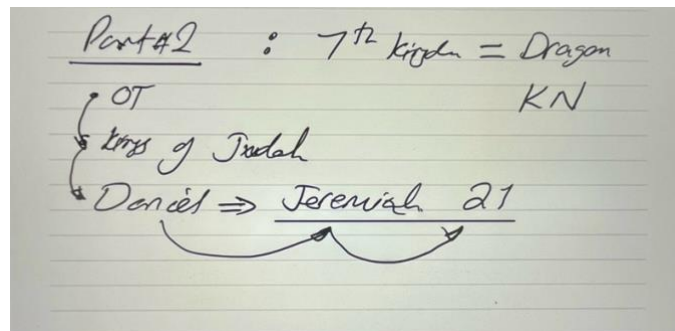 Part#2 : 7th kingdm = Dragon
• OT KN
• Kings of Judah
• Daniel ⇒ Jeremiah 21